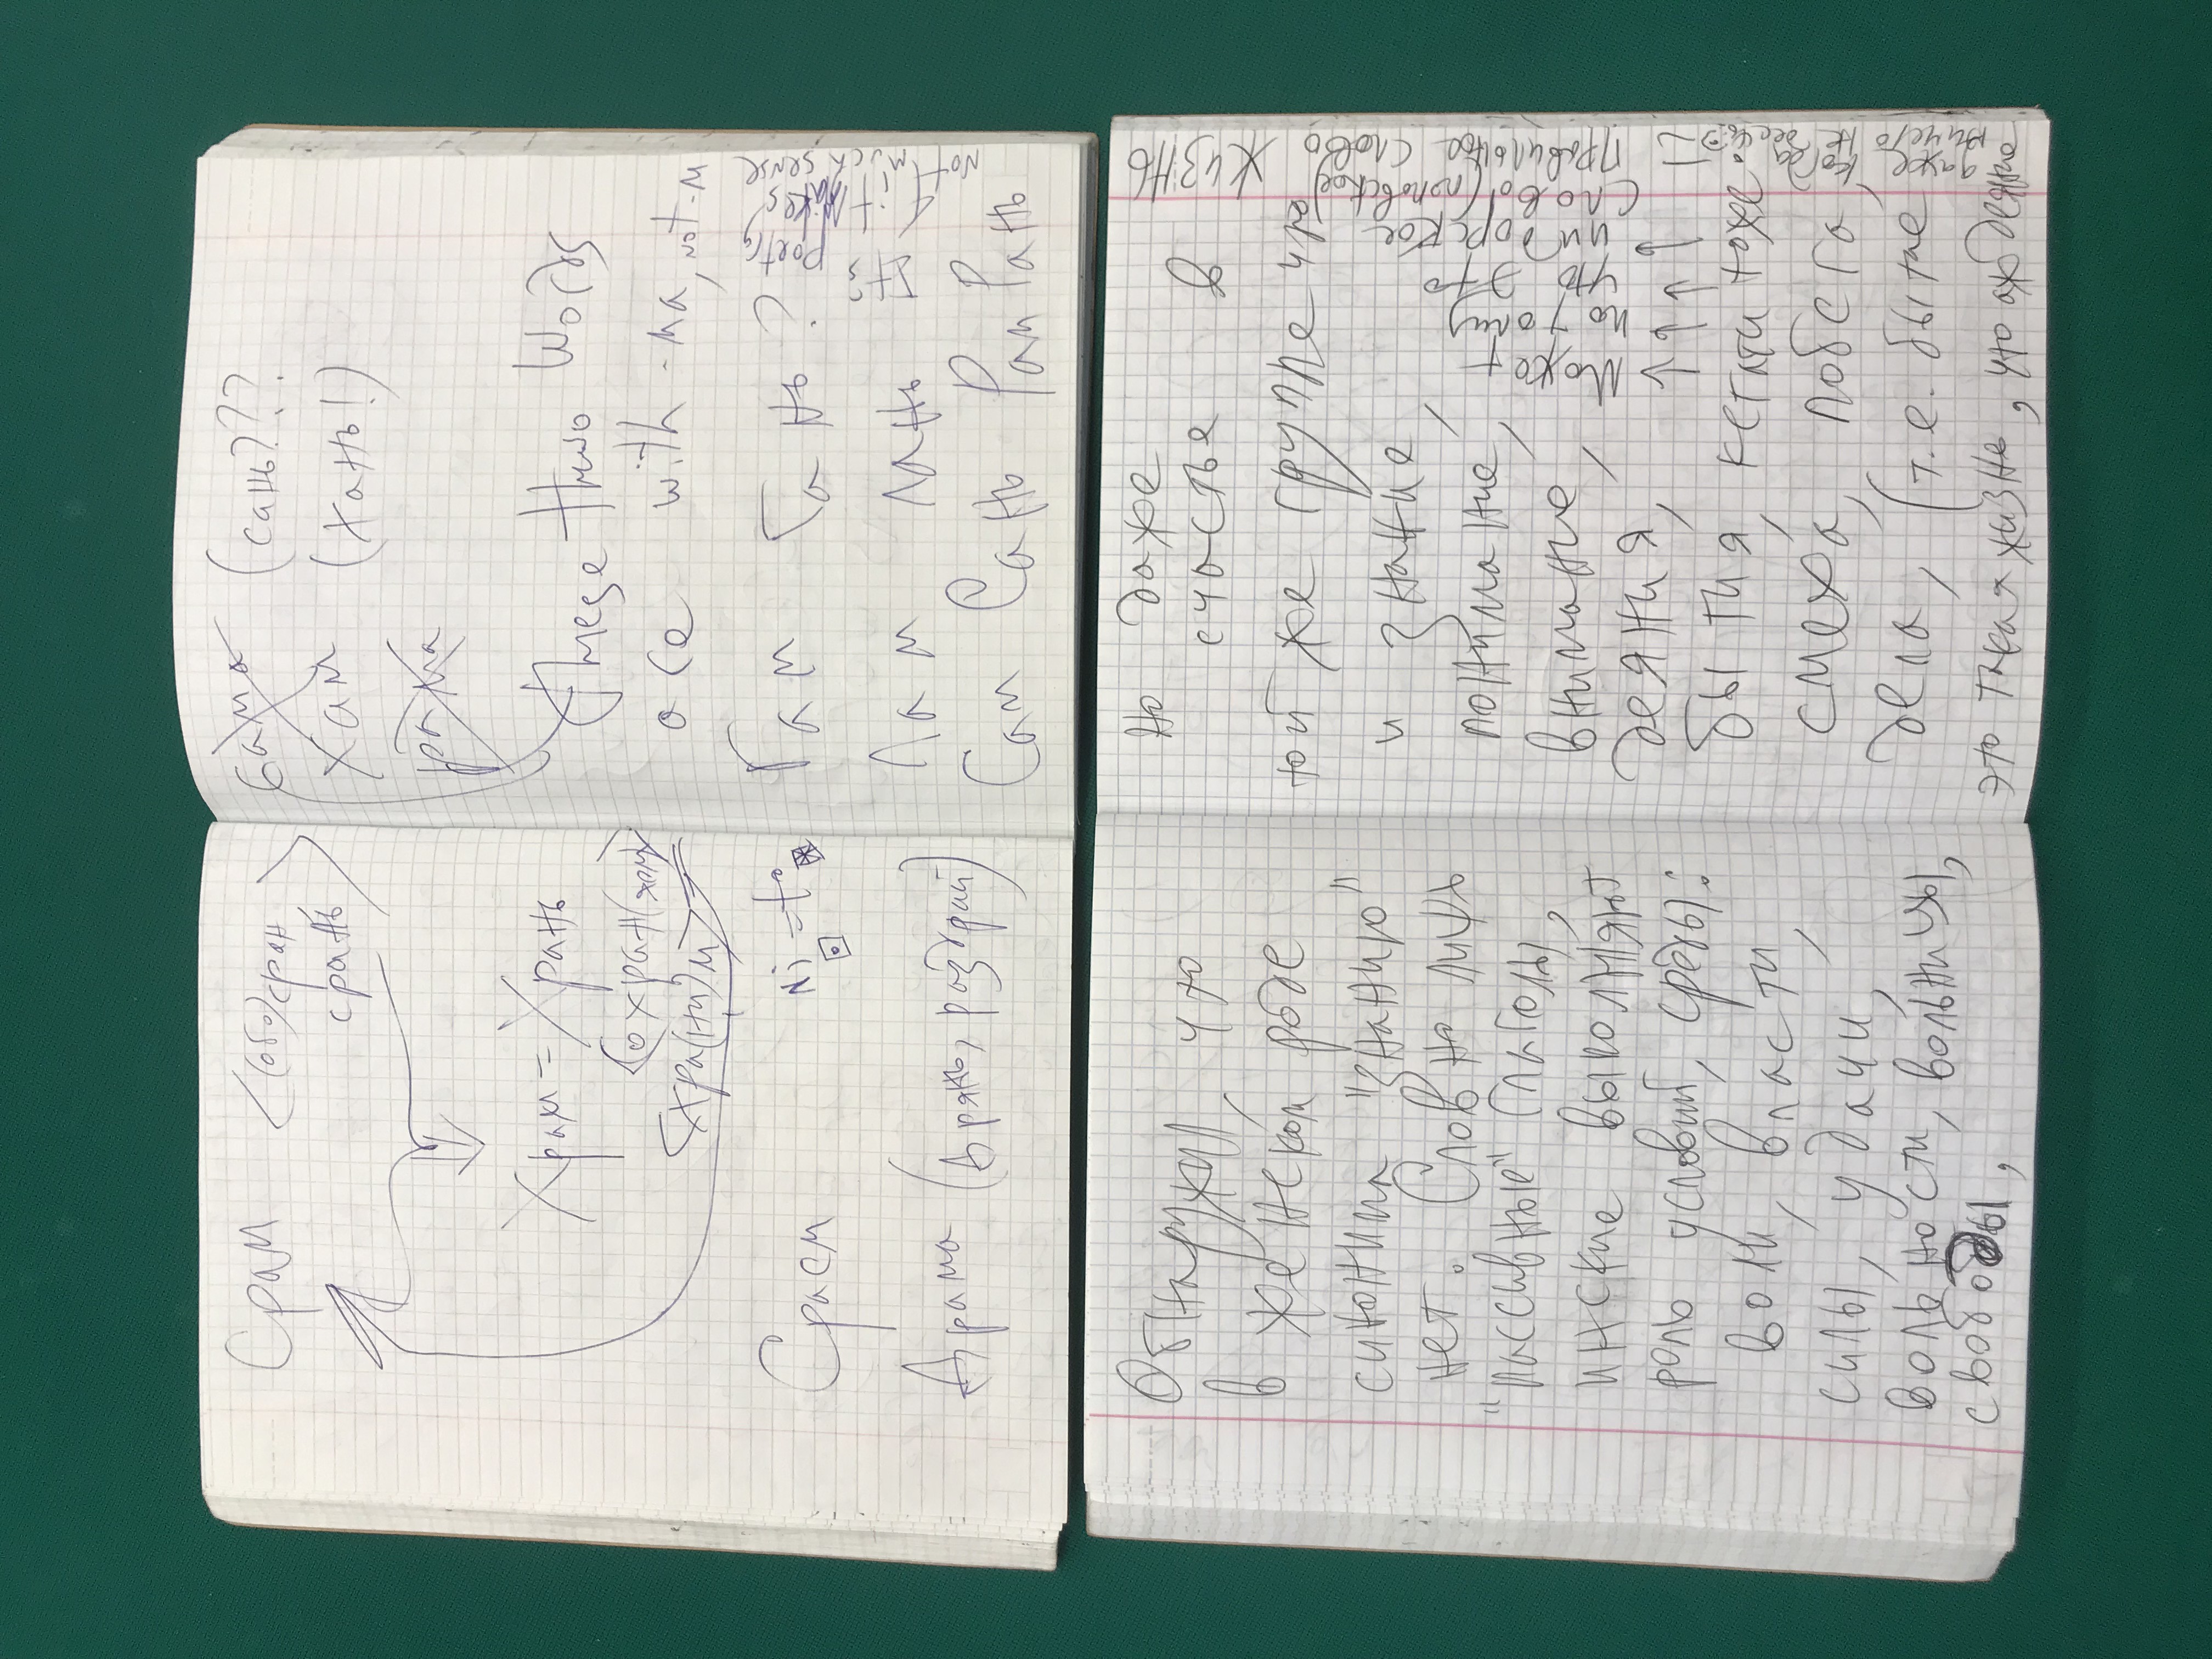 Срам <(обо)сран,
срань>
Храм = Хрань
<охран(яем)>
<хра(ни)м>
Ni = t°
Сраем
Драма (Дрянь, раздрай)
сама (сань???
хам (хань!)
рахма
these thwo words
are with -ма, not -м
Гам Гань?
Лам лань
Сам Сань Рам Рань
It's poetry
it makes
not much sense
Обнаружил, что
в женском роде
синонима "знанию"
нет. Словно лишь
"пассивные" глаголы,
инские выполняют
роль условий, среды:
воли, власти,
силы, удачи,
вольности, вольницы,
свободы,
но даже
счастье в
той же группе что
и знание,
понимание,
внимание,
деяния,
бытия, кстати тоже
смеха, побега,
дела, (т.е. бытие
это такая жизнь, что аж деянно
даже когда
ничего не десчь☺)
↑ Может
↑ потому
↑ что это
↑ чигорское
слово (поповское)
→ Правильное слово ЖИЗНЬ